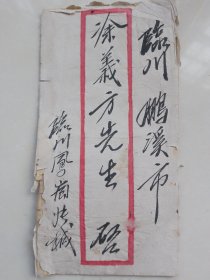 臨川 鵬溪市
涂義方先生 啓
臨川鳳崗